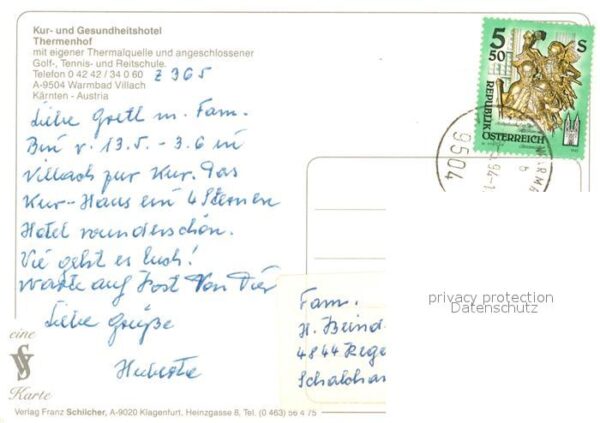 Kur- und Gesundheitshotel
Thermenhof
mit eigener Thermalquelle und angeschlossener
Golf-, Tennis- und Reitschule.
Telefon 0 42 42 / 34 0 60
Z 365
A-9504 Warmbad Villach
Kärnten - Austria
Liebe Gretl m. Fam.
Bin v. 13.5. - 3.6 in
Villach zur Kur. Das
Kur-Haus ein 4 Sternen
Hotel wunderschön.
Wie geht es Euch!
Warte auf Post von Dir
Liebe Grüße
eine
Karte
Verlag Franz Schilcher, A-9020 Klagenfurt, Heinzgasse 8, Tel. (0 463) 56 4 75
5 50 S
REPUBLIK
ÖSTERREICH
9504
WARMB
b
94-1
privacy protection
Datenschutz
Fam.
H.
4844 Rege
Schalchar